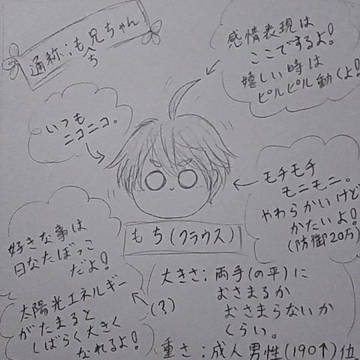 通称:も兄ちゃん
ち
感情表現は
ここでするよ!
嬉しい時は
ピルピル動くよ!
いつも
ニコニコ。
モチモチ
モニモニ。
やわらかいけど
かたいよ!
(防御20万)
もち(クラウス)
好きな事は
日なたぼっこ
だよ!
太陽光エネルギー
がたまると
しばらく大きく
なれるよ!
(?)
大きさ:両手(の平)に
おさまるか
おさまらないか
くらい。
重さ:成人男性(190↑)位